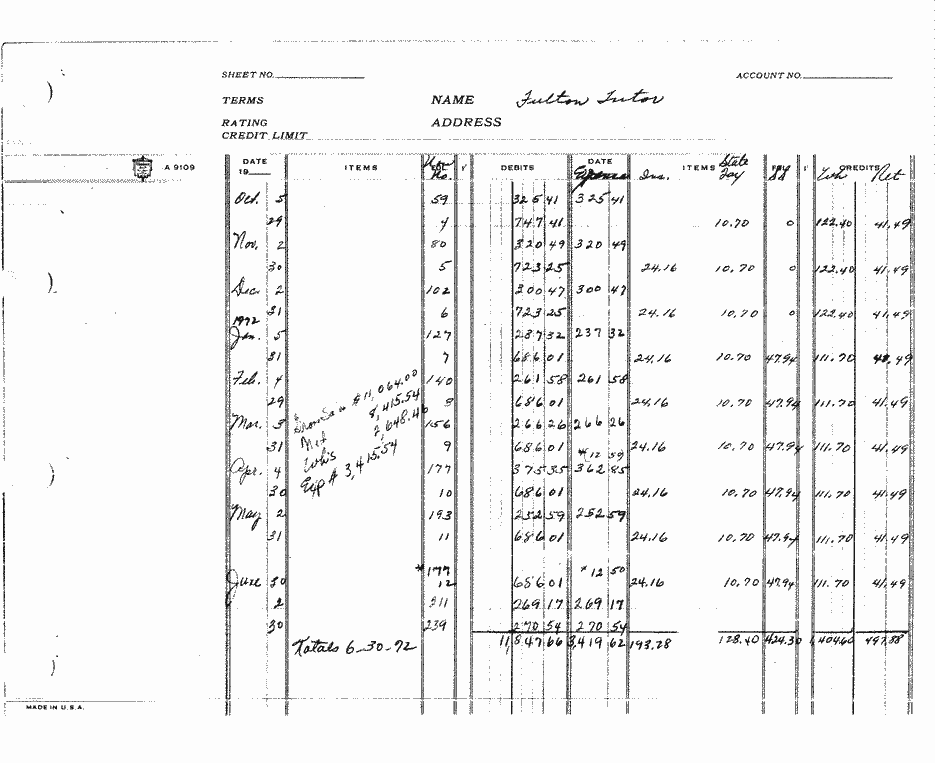 SHEET NO. ACCOUNT NO.
TERMS NAME Fulton Tutor
RATING ADDRESS
CREDIT LIMIT
A 9109
DATE 19 ITEMS No. DEBITS DATE Expense Ins. ITEMS State CREDITS Wh Ret
Oct. 5 59 325 41 325 41
29 4 747 41 10.70 0 122.40 41.49
Nov. 2 80 320 49 320 49
30 5 723 25 24.16 10.70 0 122.40 41.49
Dec. 2 102 300 47 300 47
31 6 723 25 24.16 10.70 0 122.40 41.49
1972
Jan. 5 127 237 32 237 32
31 7 686 01 24.16 10.70 47.94 111.70 41.49
Feb. 4 140 261 58 261 58
29 8 686 01 24.16 10.70 47.94 111.70 41.49
Mar. 3 156 266 26 266 26
31 9 686 01 24.16 10.70 47.94 111.70 41.49
* 12 50
Apr. 4 177 375 35 362 85
30 10 686 01 24.16 10.70 47.94 111.70 41.49
May 2 193 252 59 252 59
31 11 686 01 24.16 10.70 47.94 111.70 41.49
*177 * 12 50
June 30 12 686 01 24.16 10.70 47.94 111.70 41.49
2 211 269 17 269 17
30 239 270 54 270 54
Totals 6-30-72 11,847 66 3,419 62 193.28 128.40 424.30 1,404.60 497.88
$11,064.00
Net 8,415.54
Wh's 2,648.46
Exp # 3,415.54
MADE IN U.S.A.